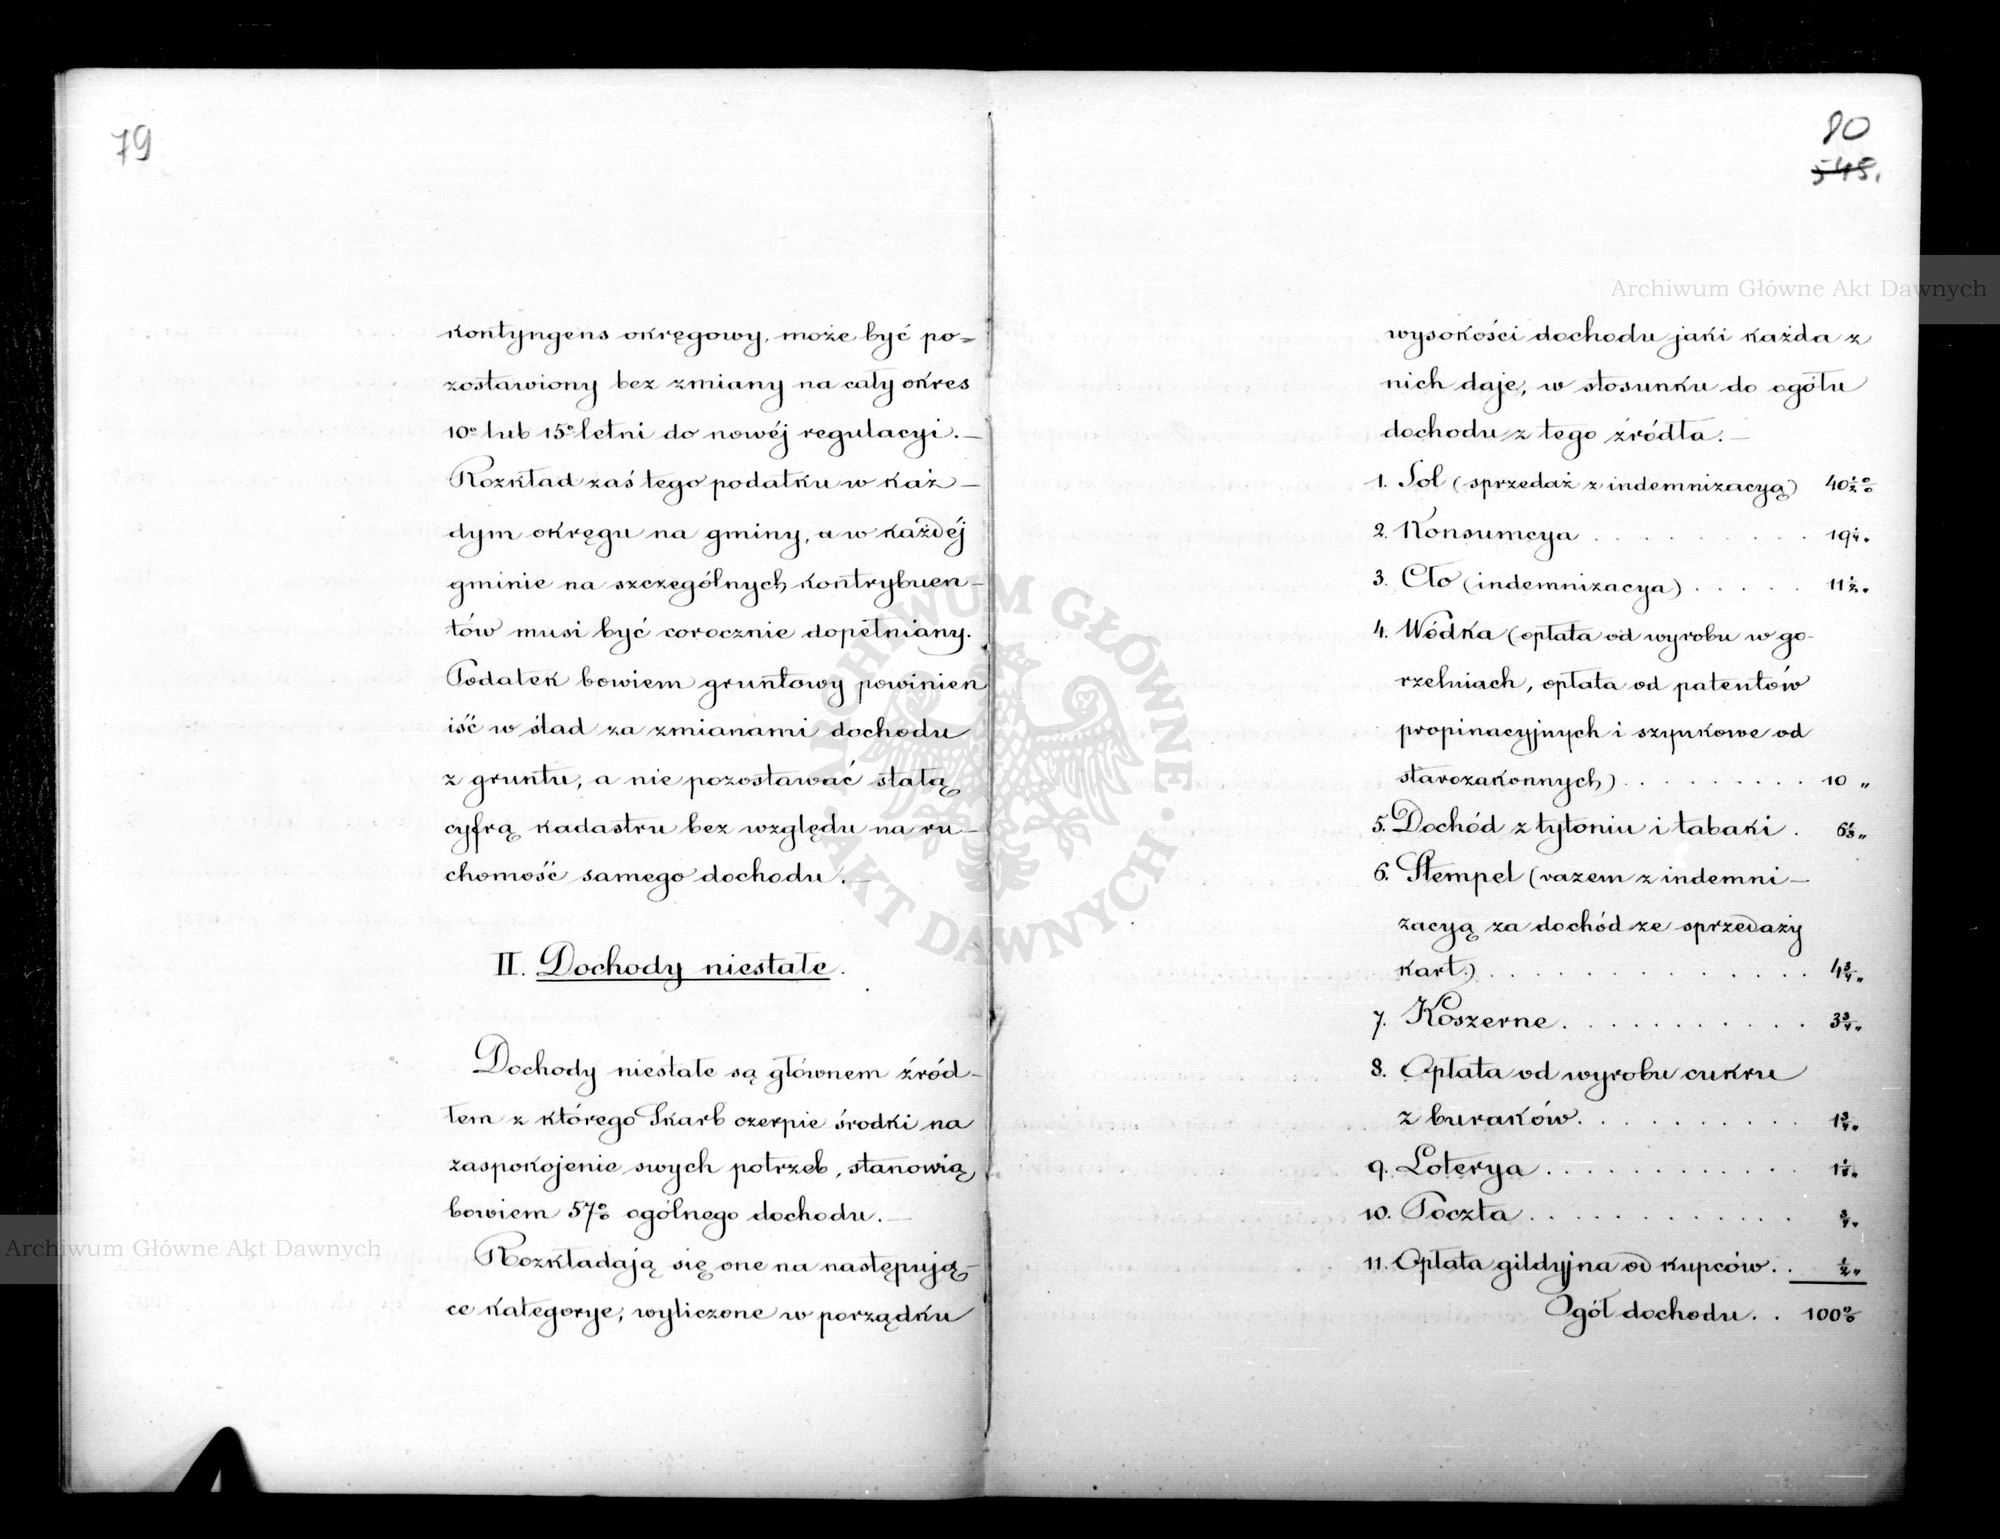 79
kontyngens okręgowy, może być po=
zostawiony bez zmiany na cały okres
10º lub 15º letni do nowéj regulacyi.—
Rozkład zaś tego podatku w każ—
dym okręgu na gminy, a w każdéj
gminie na szczególnych kontrybuen—
tów musi być corocznie dopełniany.
Podatek bowiem gruntowy powinien
iść w ślad za zmianami dochodu
z gruntu, a nie pozostawać stałą
cyfrą kadastru bez względu na ru—
chomość samego dochodu.—
II. Dochody niestałe.
Dochody niestałe są głównem źród—
łem z którego Skarb czerpie środki na
zaspokojenie swych potrzeb, stanowią
bowiem 57% ogólnego dochodu.—
Rozkładają się one na następują—
ce kategorye, wyliczone w porządku
80
545.
wysokości dochodu jaki każda z
nich daje, w stosunku do ogółu
dochodu z tego źródła.—
1. Sol (sprzedaż z indemnizacyą) 40½%
2. Konsumcya . . . . . . . . . . 19¼ „
3. Cło (indemnizacya) . . . . . 11½ „
4. Wódka (opłata od wyrobu w go-
rzelniach, opłata od patentów
propinacyjnych i szynkowe od
starozakonnych) . . . . . . . . . 10 „
5. Dochód z tytoniu i tabaki . 6⅓ „
6. Stempel (razem z indemni—
zacyą za dochód ze sprzedaży
kart.) . . . . . . . . . . . . . . 4¾ „
7. Koszerne . . . . . . . . . . . 3¾ „
8. Opłata od wyrobu cukru
z buraków . . . . . . . . . . 1¾ „
9. Loterya . . . . . . . . . . . .
10. Poczta . . . . . . . . . . . . . ¾ „
11. Opłata gildyjna od kupców . . ½ „
Ogół dochodu . . 100%
Archiwum Główne Akt Dawnych
Archiwum Główne Akt Dawnych
ARCHIWUM GŁÓWNE · AKT DAWNYCH ·